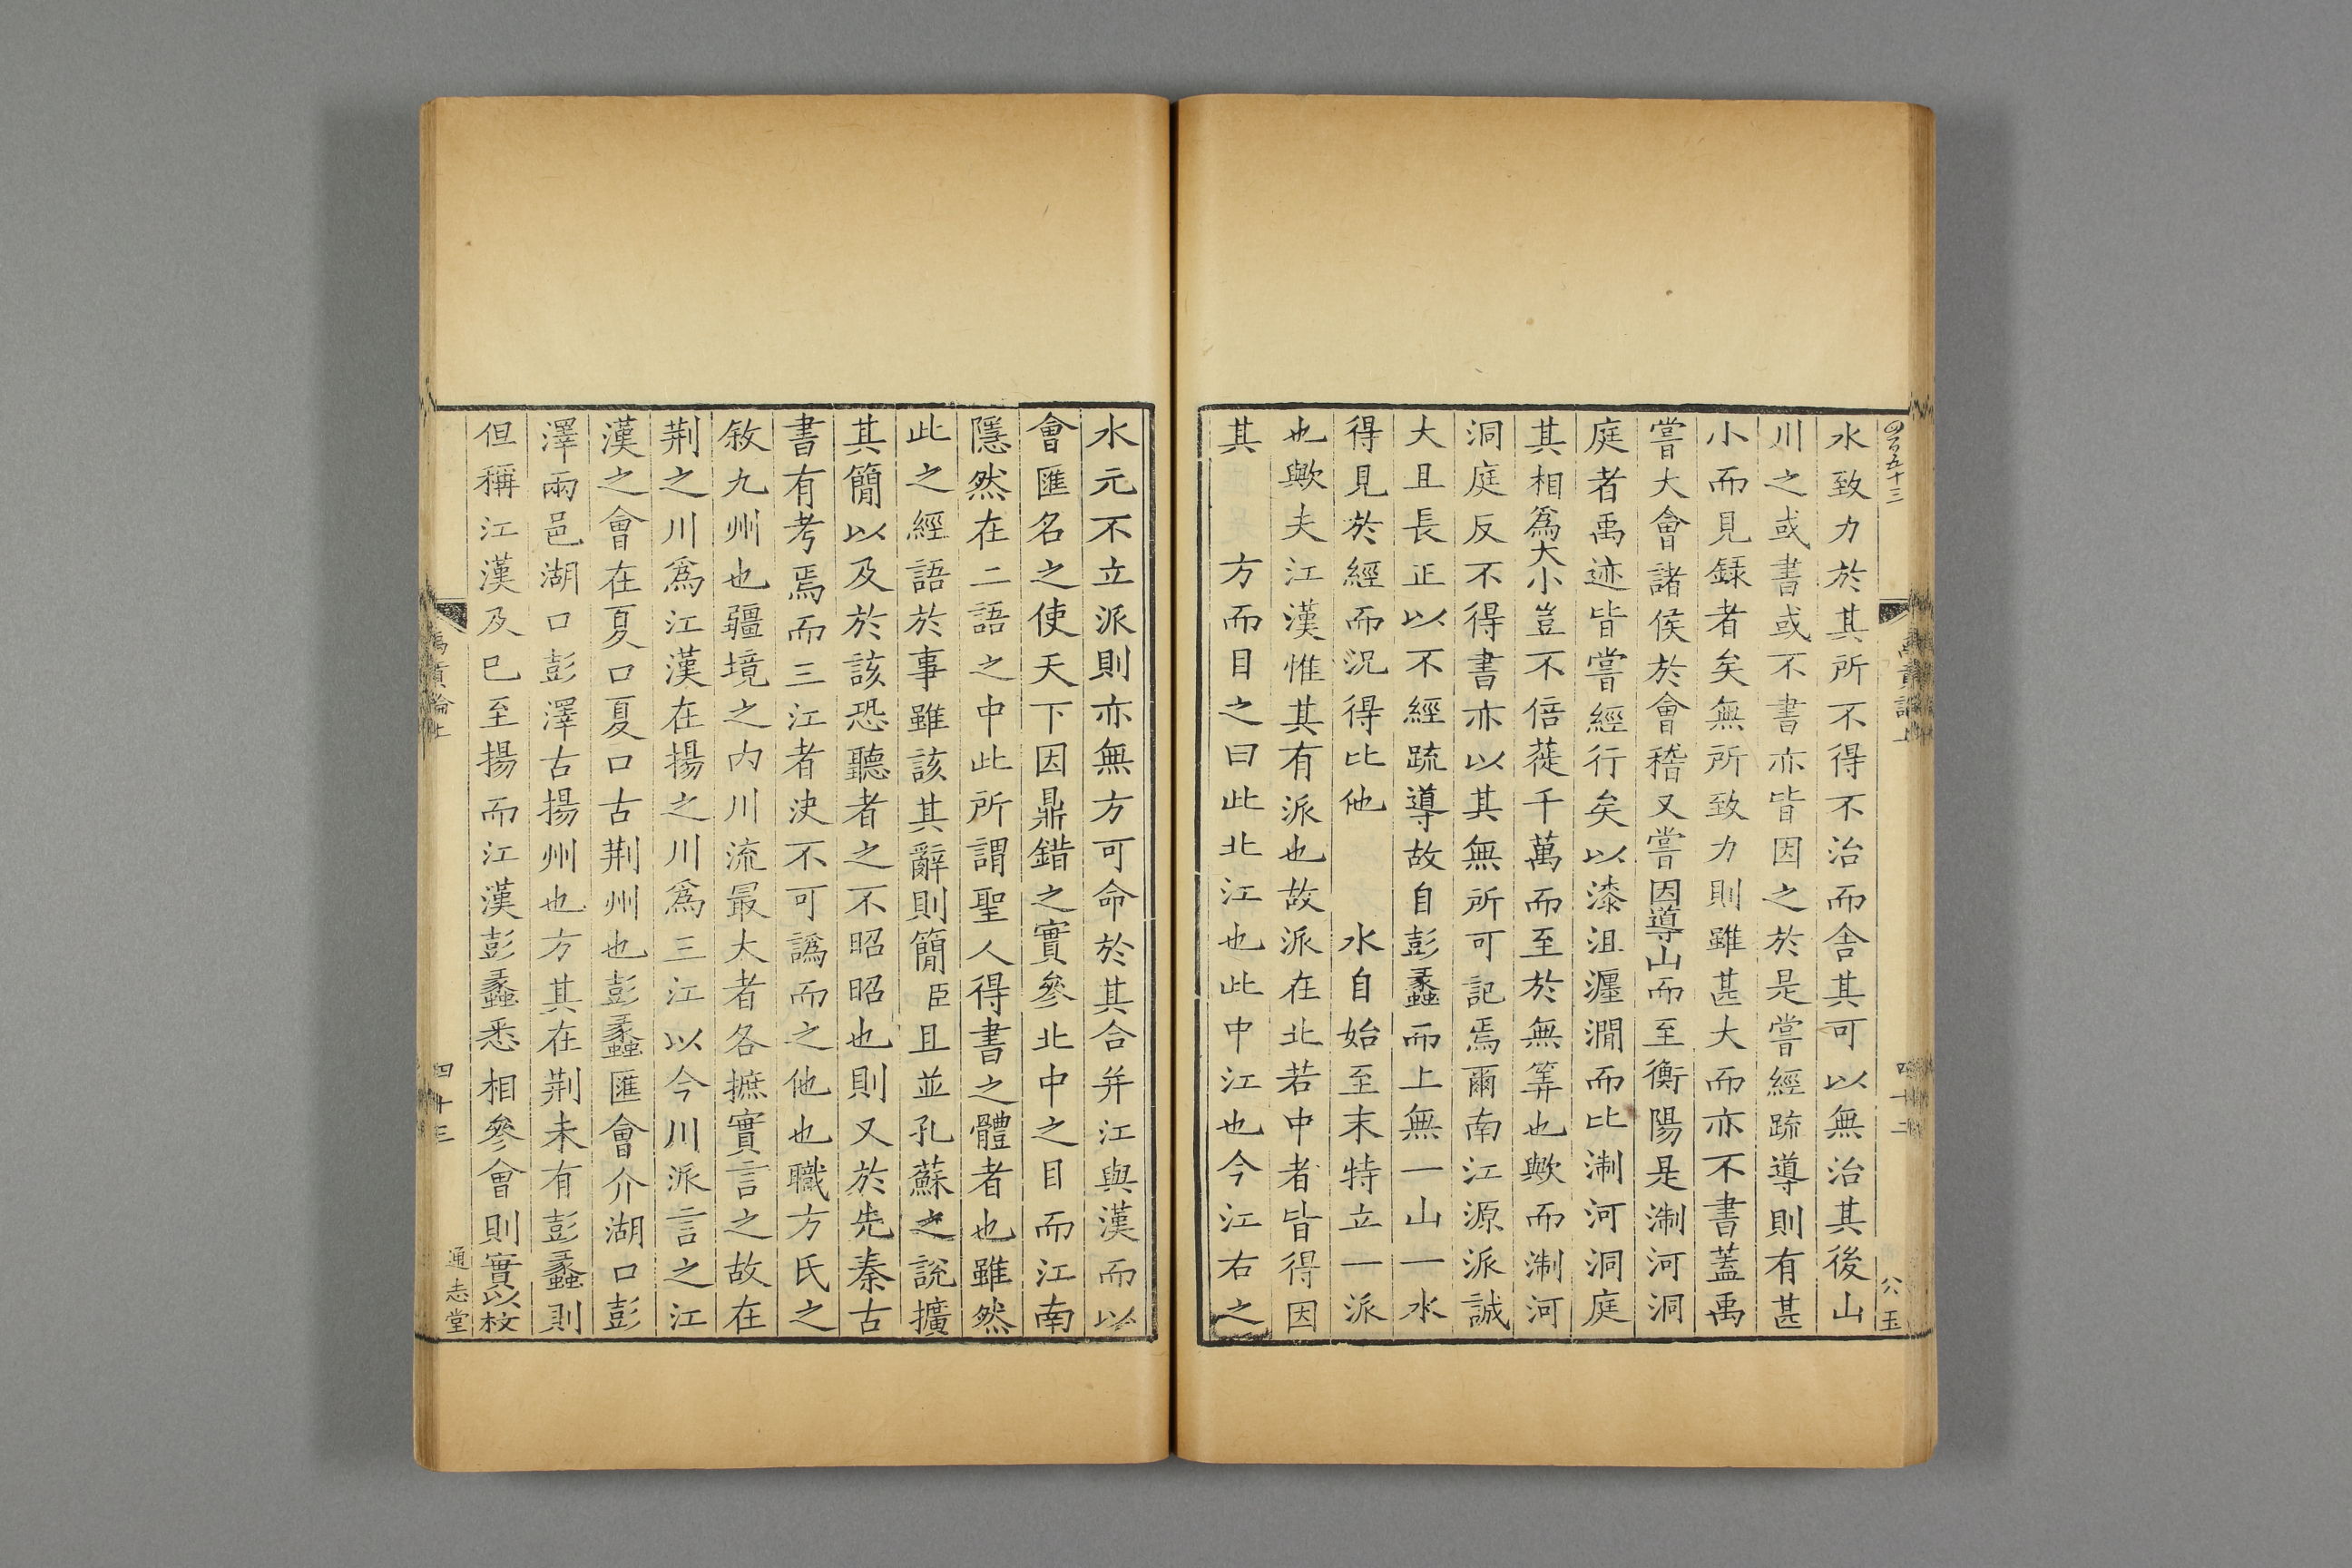 四百五十三
禹貢論上
四十二
八玉
水致力於其所不得不治而舍其可以無治其後山
川之或書或不書亦皆因之於是嘗經䟽導則有甚
小而見録者矣無所致力則雖甚大而亦不書蓋禹
嘗大會諸侯於會稽又嘗因導山而至衡陽是淛河洞
庭者禹迹皆嘗經行矣以漆沮瀍澗而比淛河洞庭
其相為大小豈不倍蓰千萬而至於無筭也歟而淛河
洞庭反不得書亦以其無所可記焉爾南江源派誠
大且長正以不經䟽導故自彭蠡而上無一山一水
得見於經而況得比他 水自始至末特立一派
也歟夫江漢惟其有派也故派在北若中者皆得因
其 方而目之曰此北江也此中江也今江右之
水元不立派則亦無方可命於其合并江與漢而以
會匯名之使天下因鼎錯之實參北中之目而江南
隱然在二語之中此所謂聖人得書之體者也雖然
此之經語於事雖該其辭則簡臣且並孔蘇之說擴
其簡以及於該恐聽者之不昭昭也則又於先秦古
書有考焉而三江者決不可譌而之他也職方氏之
敘九州也疆境之內川流最大者各摭實言之故在
荆之川為江漢在揚之川為三江以今川派言之江
漢之會在夏口夏口古荆州也彭蠡匯會介湖口彭
澤兩邑湖口彭澤古揚州也方其在荆未有彭蠡則
但稱江漢及巳至揚而江漢彭蠡悉相參會則實以枝
禹貢論上
四十三
通志堂